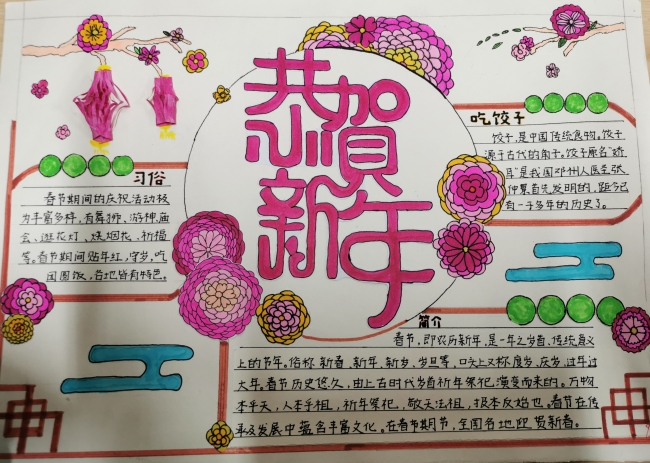 恭贺
新年
吃饺子
饺子,是中国传统食物。饺子
源于古代的角子。饺子原名“娇
耳”是我国邓州人医圣张
仲景首先发明的,距今已
有一千多年的历史了。
习俗
春节期间的庆祝活动极
为丰富多样,有舞狮、游神庙
会、逛花灯、烧烟花、祈福
等。春节期间贴年红,守岁,吃
团圆饭,各地皆有特色。
简介
春节,即农历新年,是一年之岁首、传统意义
上的节年。俗称新春、新年、新岁、岁旦等,口头上又称度岁、庆岁、过年过
大年。春节历史悠久,由上古时代岁首祈年祭祀演变而来的。万物
本乎天,人本乎祖,祈年祭祀,敬天法祖,报本反始也。春节在传
承及发展中蕴含丰富文化。在春节期节,全国各地
贺新春。